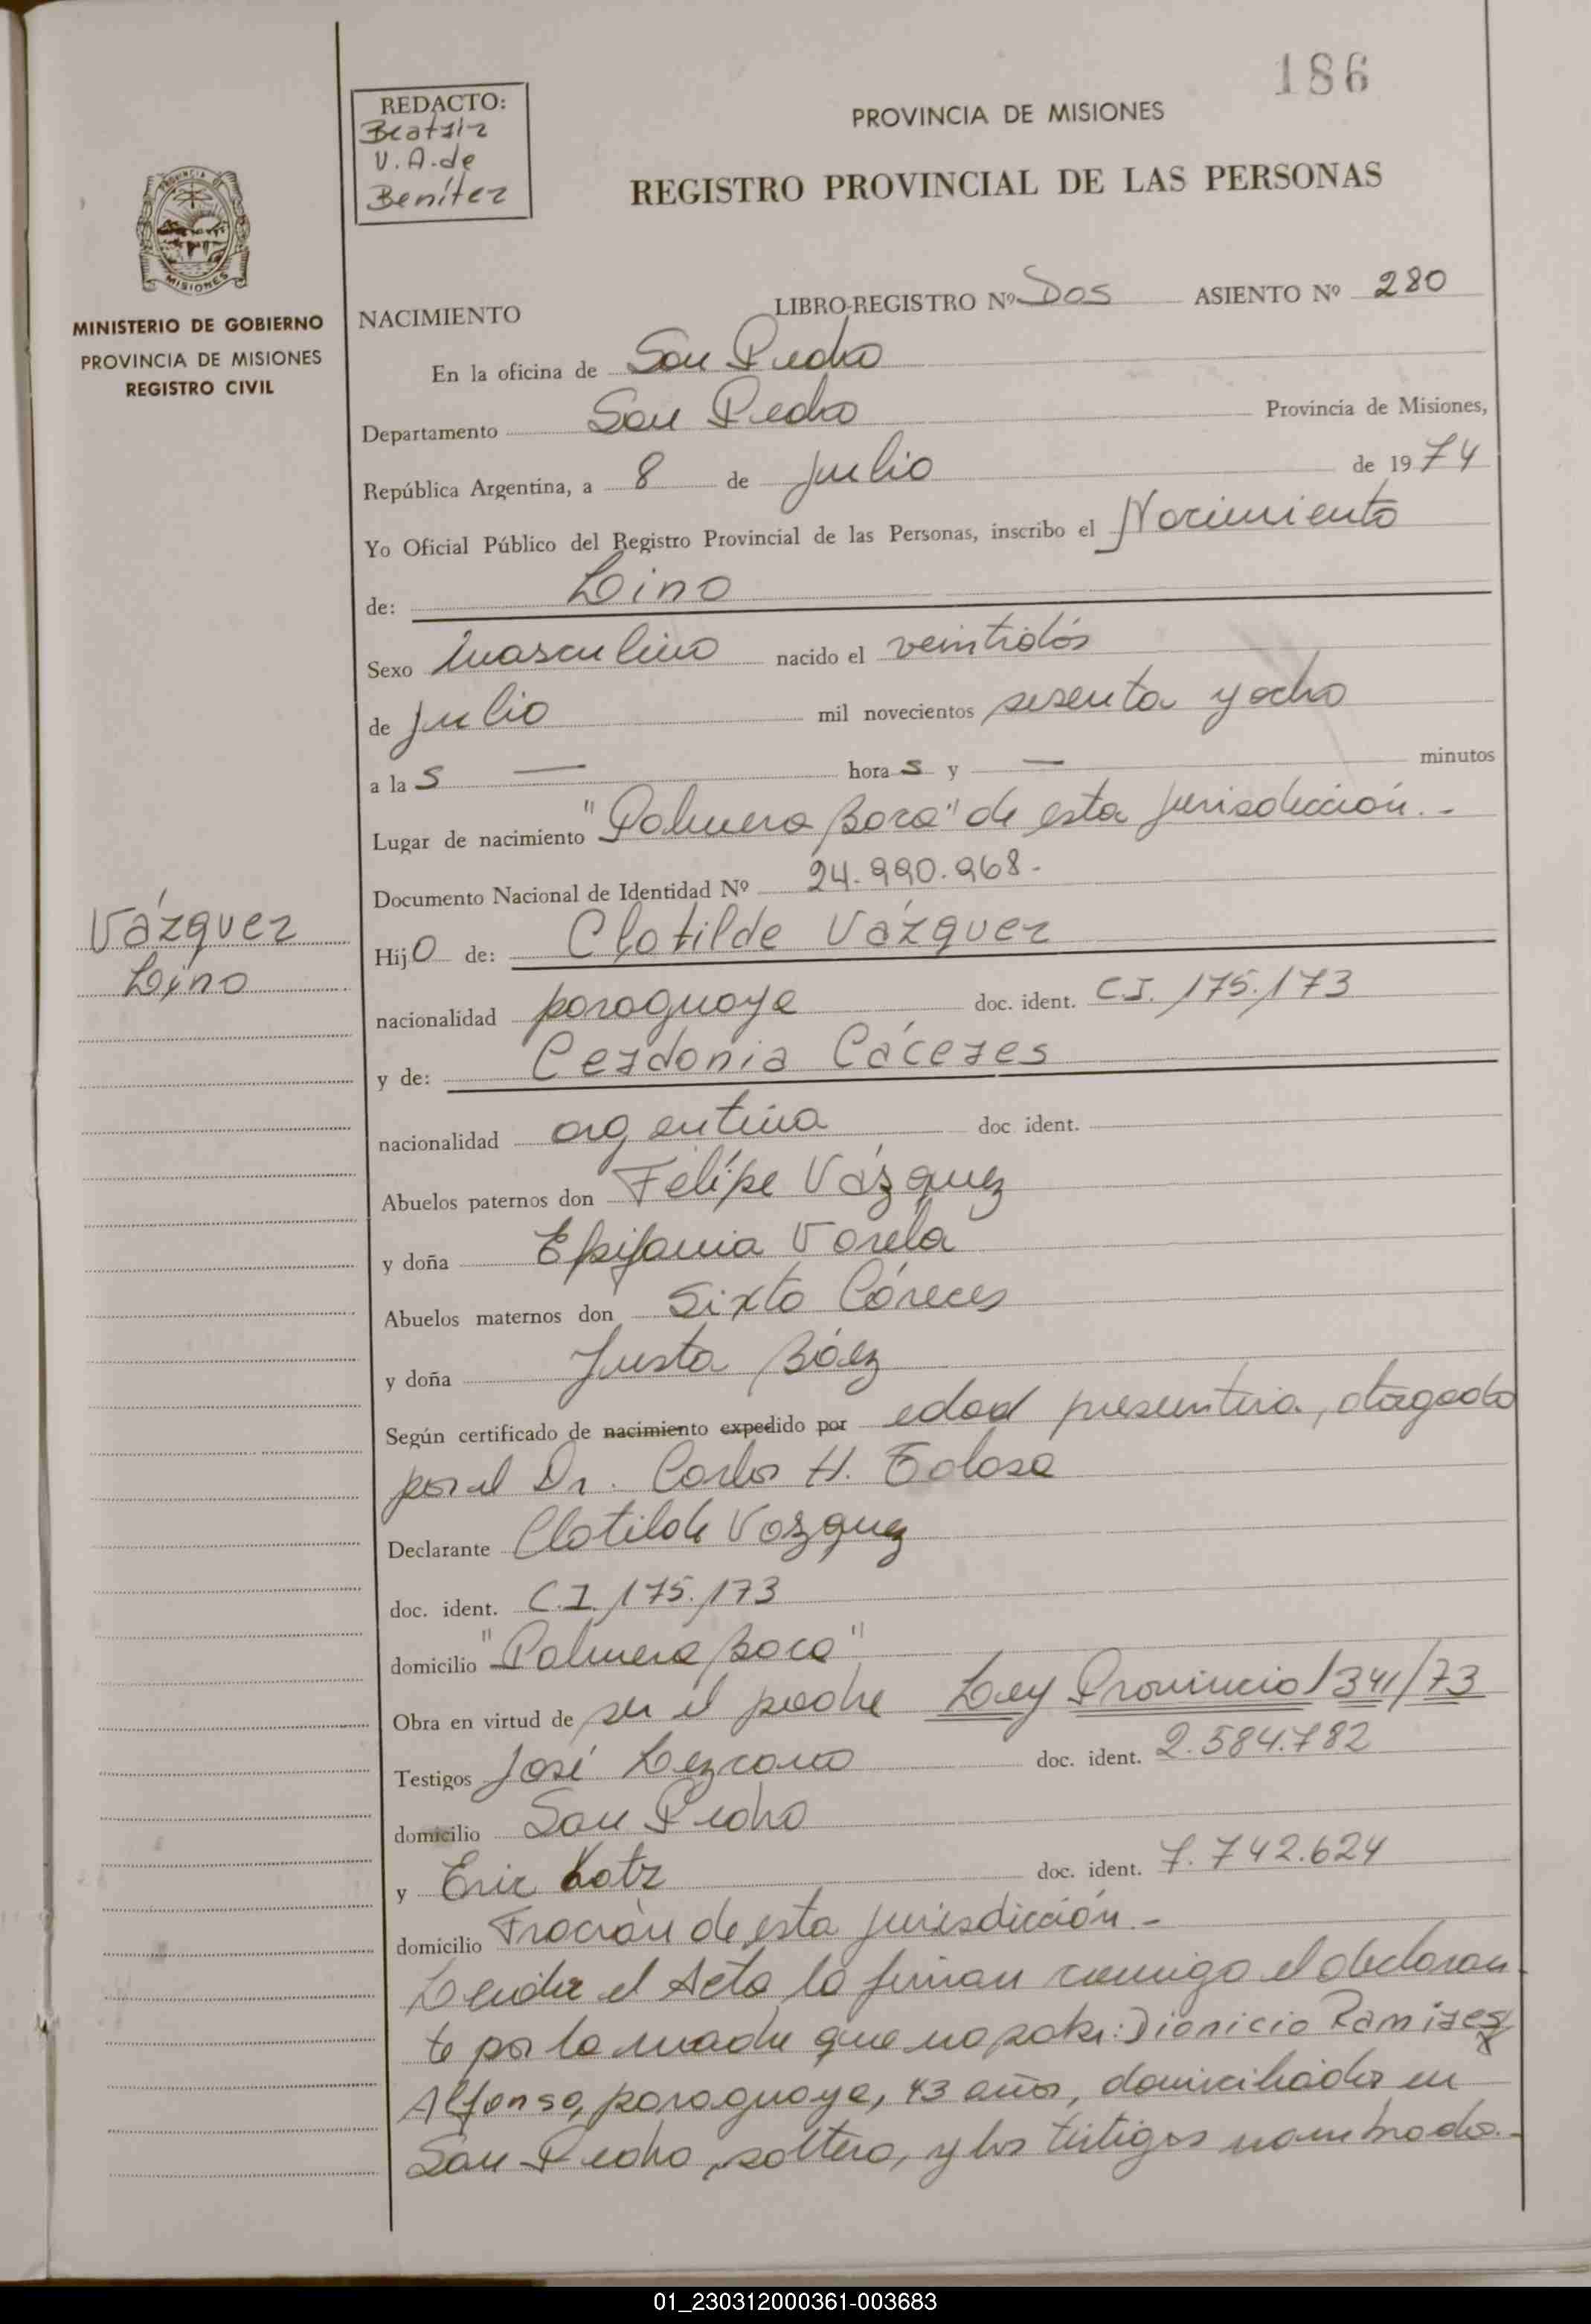 186
REDACTO:
Beatriz
V. A. de
Benítez
PROVINCIA DE MISIONES
REGISTRO PROVINCIAL DE LAS PERSONAS
PROVINCIA DE
MISIONES
MINISTERIO DE GOBIERNO
PROVINCIA DE MISIONES
REGISTRO CIVIL
NACIMIENTO LIBRO-REGISTRO Nº Dos ASIENTO Nº 280
En la oficina de San Pedro
Departamento San Pedro Provincia de Misiones,
República Argentina, a 8 de Julio de 1974
Yo Oficial Público del Registro Provincial de las Personas, inscribo el Nacimiento
de: Lino
Sexo Masculino nacido el veintidós
de Julio mil novecientos sesenta y ocho
a la s — hora s y — minutos
Lugar de nacimiento "Palmera Boca" de esta jurisdicción.-
Documento Nacional de Identidad Nº 24.990.968.-
Vázquez
Lino
Hijo de: Clotilde Vázquez
nacionalidad paraguaya doc. ident. C.I. 175.173
y de: Cerdonia Cáceres
nacionalidad argentina doc ident.
Abuelos paternos don Felipe Vázquez
y doña Epifania Varela
Abuelos maternos don Sixto Cáceres
y doña Justa Báez
Según certificado de nacimiento expedido por edad presuntiva, otorgado
por el Dr. Carlos H. Tolosa
Declarante Clotilde Vázquez
doc. ident. C.I. 175.173
domicilio "Palmera Boca"
Obra en virtud de ser el padre Ley Provincial 341/73
Testigos José Lezcano doc. ident. 2.584.782
domicilio San Pedro
y Eric Katz doc. ident. 7.742.624
domicilio Fracrán de esta jurisdicción.-
Leida el Acta, la firman conmigo el declaran-
te por la madre que no sabe: Dionicio Ramirez
Alfonso, paraguayo, 43 años, domiciliado en
San Pedro, soltero, y los testigos nombrados.-
01_230312000361-003683